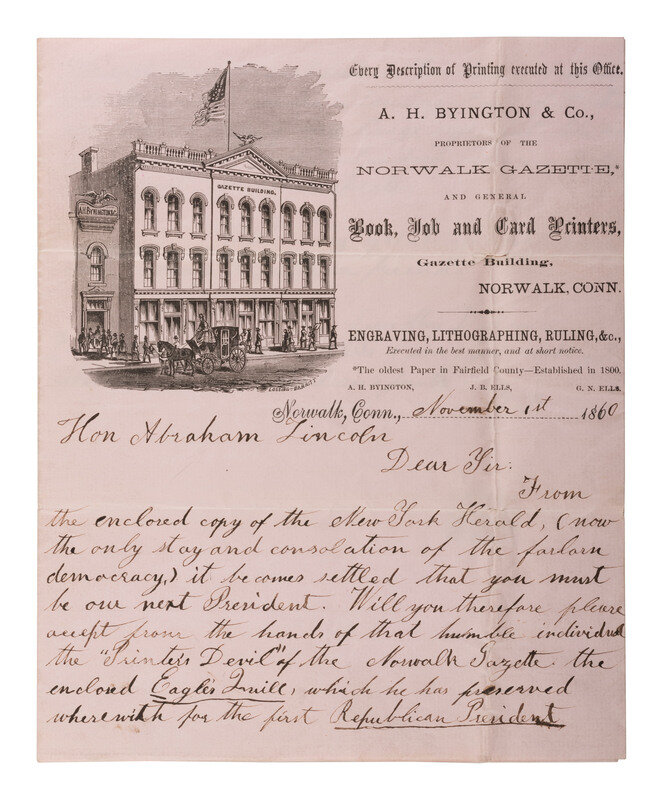 Every Description of Printing executed at this Office.
A. H. BYINGTON & Co.,
PROPRIETORS OF THE
NORWALK GAZETTE,*
AND GENERAL
Book, Job and Card Printers,
Gazette Building,
NORWALK, CONN.
ENGRAVING, LITHOGRAPHING, RULING, &c.,
Executed in the best manner, and at short notice.
*The oldest Paper in Fairfield County—Established in 1800.
A. H. BYINGTON, J. B. ELLS, G. N. ELLS.
GAZETTE BUILDING.
A.H.BYINGTON&C
Norwalk, Conn., November 1st 1860
Hon Abraham Lincoln
Dear Sir:
From
the enclosed copy of the New York Herald, (now
the only stay and consolation of the forlorn
democracy,) it becomes settled that you must
be our next President. Will you therefore please
accept from the hands of that humble individual
the "Printers Devil" of the Norwalk Gazette the
enclosed Eagle's Quill, which he has preserved
wherewith for the first Republican President